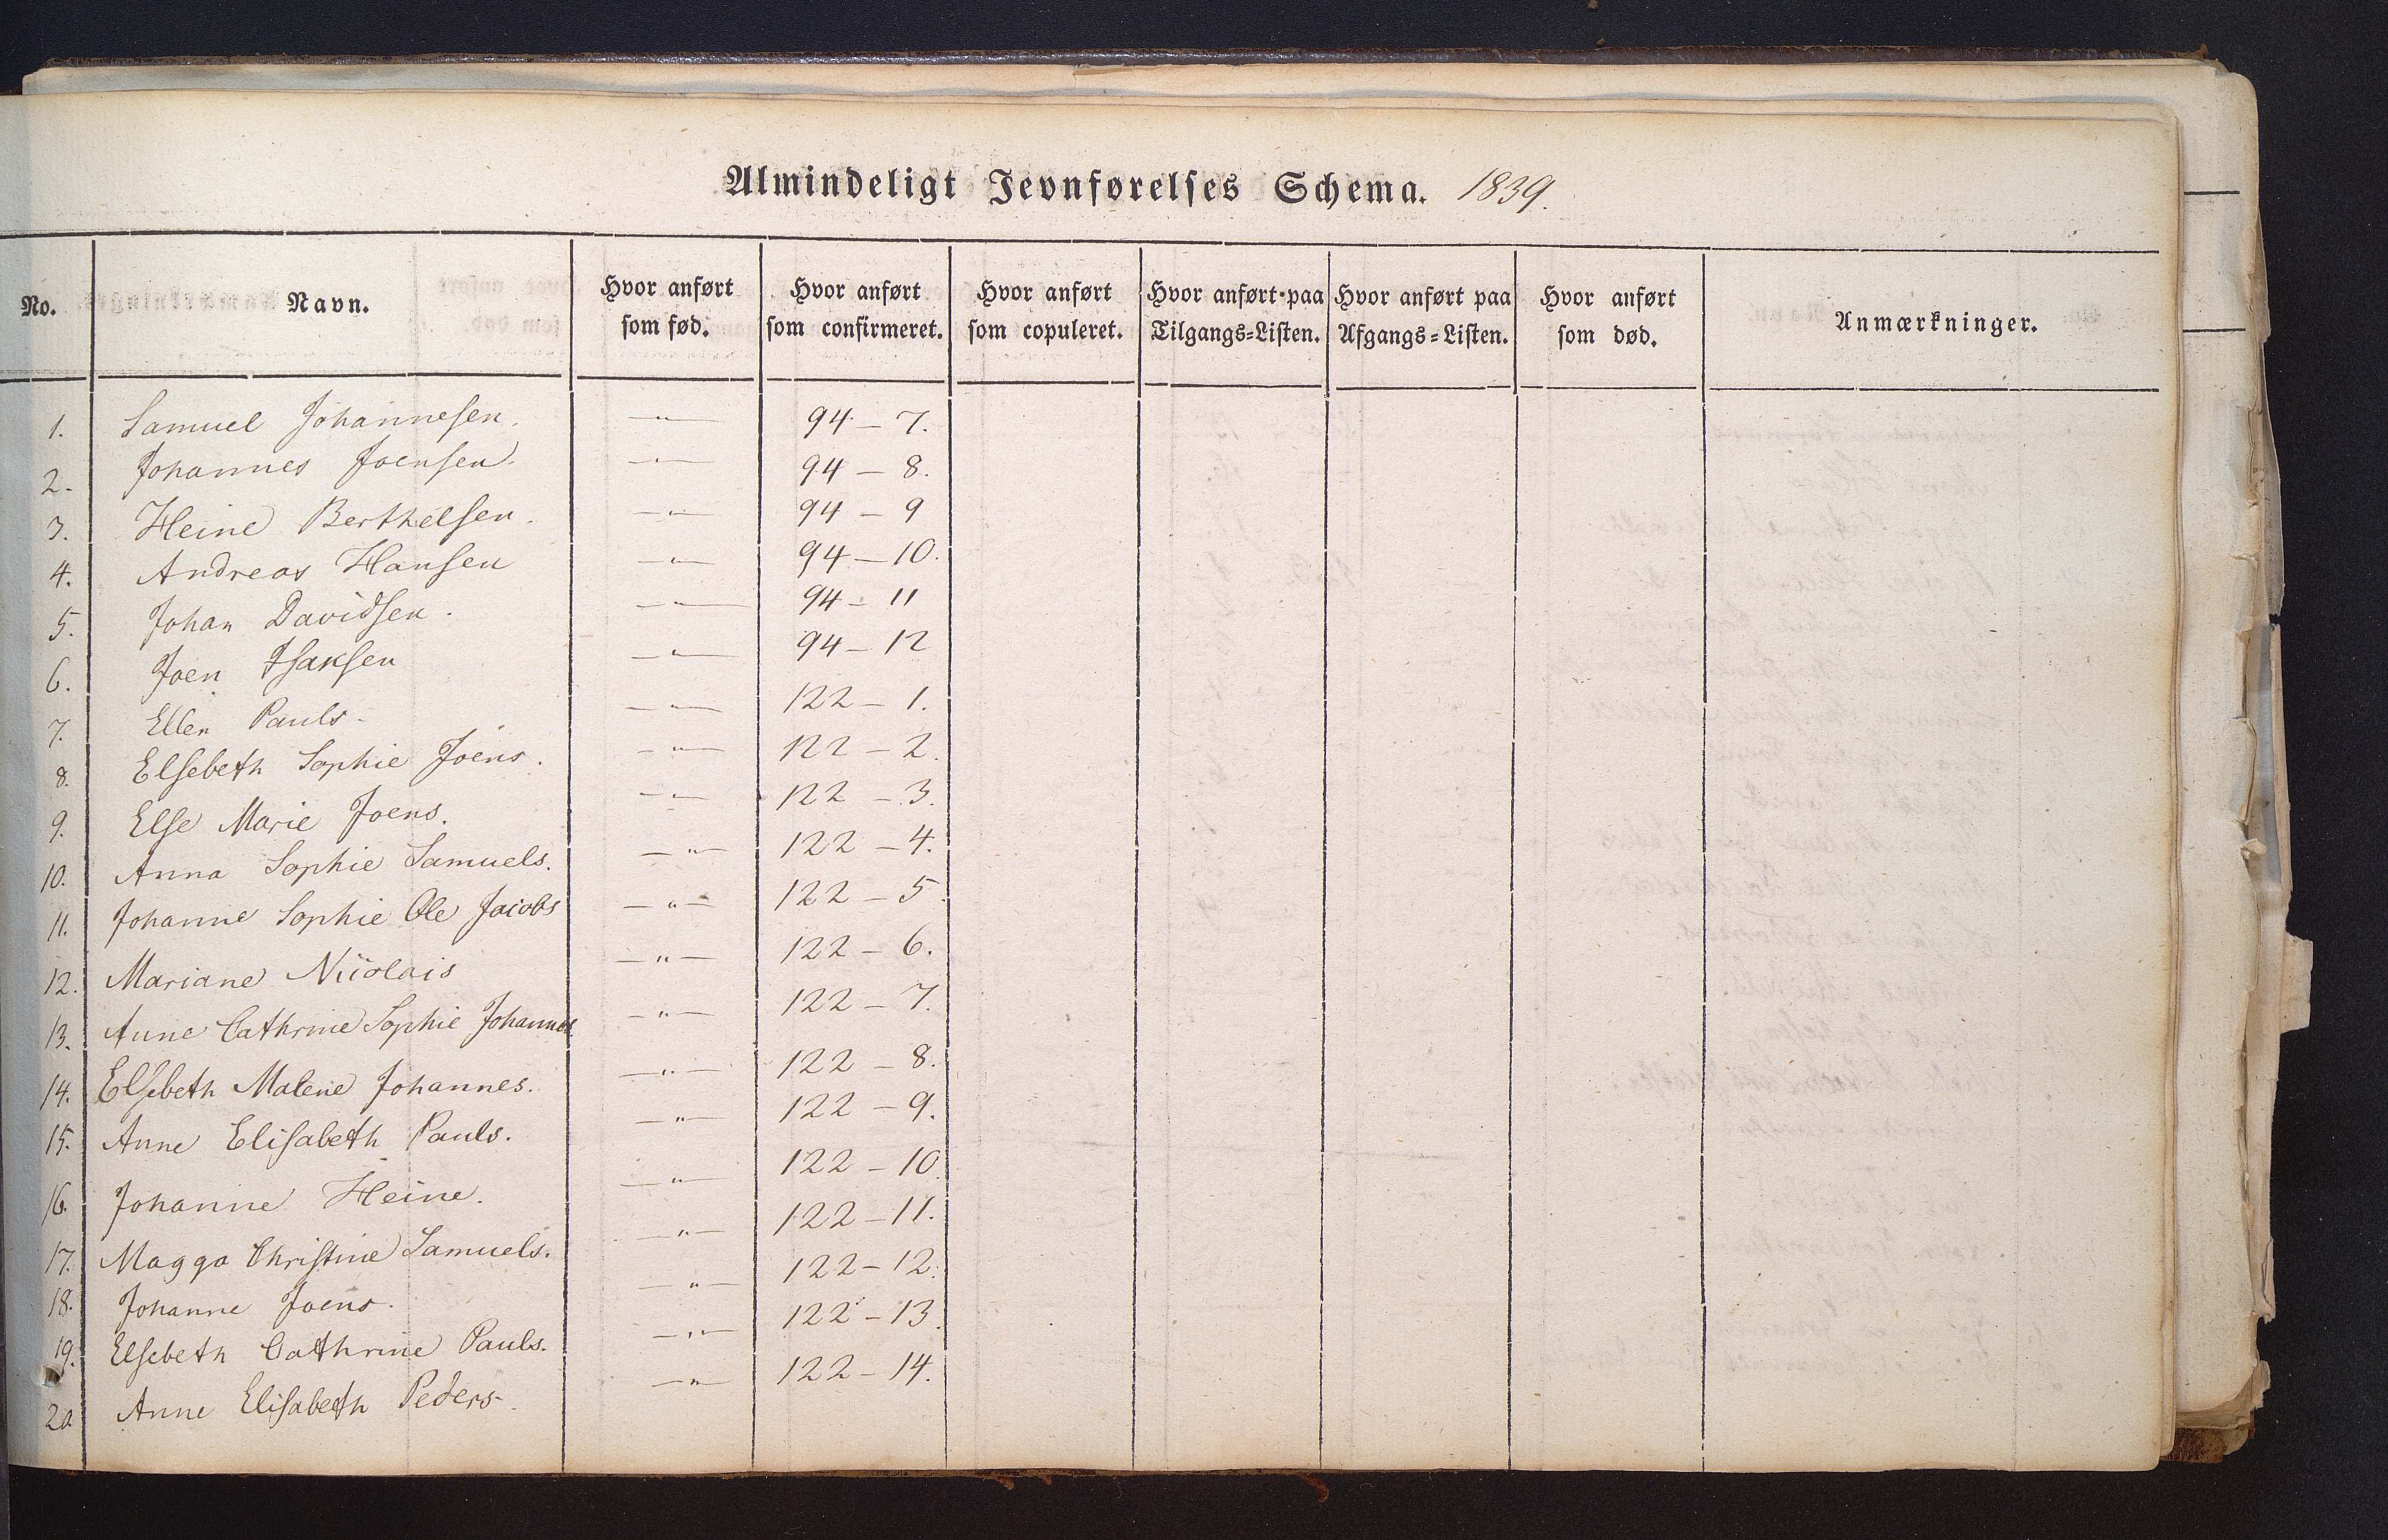 Almindeligt Jevnførelses Schema. 1839.
No. Navn. Hvor anført som fød. Hvor anført som confirmeret. Hvor anført som copuleret. Hvor anført paa Tilgangs=Listen. Hvor anført paa Afgangs=Listen. Hvor anført som død. Anmærkninger.
1. Samuel Johannesen. —"— 94 – 7.
2. Johannes Joensen. —"— 94 – 8.
3. Heine Berthelsen. —"— 94 – 9
4. Andreas Hansen —"— 94 – 10.
5. Johan Davidsen. —"— 94 – 11
6. Joen Isaksen —"— 94 – 12
7. Ellen Pauls. —"— 122 – 1.
8. Elsebeth Sophie Joens. —"— 122 – 2.
9. Else Marie Joens. —"— 122 – 3.
10. Anna Sophie Samuels. —"— 122 – 4.
11. Johanne Sophie Ole Jacobs —"— 122 – 5.
12. Mariane Nicolais —"— 122 – 6.
13. Anne Cathrine Sophie Johannes. —"— 122 – 7.
14. Elsebeth Malene Johannes. —"— 122 – 8.
15. Anne Elisabeth Pauls. —"— 122 – 9.
16. Johanne Heine. —"— 122 – 10.
17. Magga Christine Samuels. —"— 122 – 11.
18. Johanne Joens. —"— 122 – 12.
19. Elsebeth Cathrine Pauls. —"— 122 – 13.
20 Anne Elisabeth Peders. —"— 122 – 14.